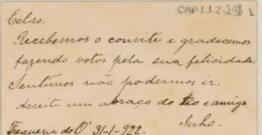 CMP 1.1.2.398
Celso.
Recebemos o convite e gradecemos
fazendo votos pela sua felicidade
Sentimos não podermos ir.
Aceite um abraço do tio e amigo
Julio.
Fregueza do Ó 31-1-922.